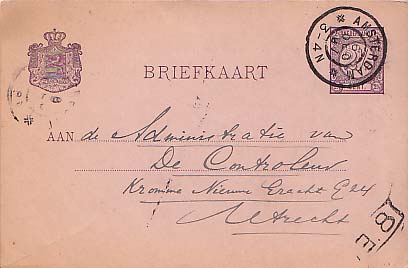 BRIEFKAART
AMSTERDAM
3-4N
AAN de Administratie van
De Controleur
Kromme Nieuwe Gracht E24
Utrecht
8E